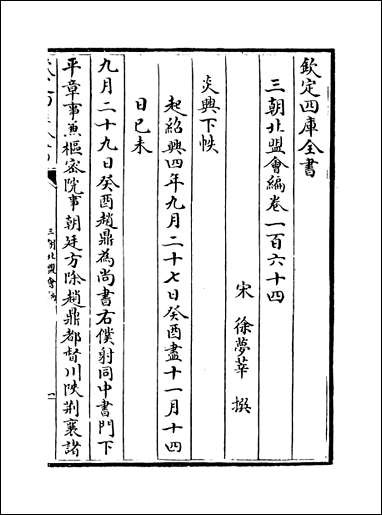 欽定四庫全書
三朝北盟會編卷一百六十四
宋 徐夢莘 撰
炎興下帙
起紹興四年九月二十七日癸酉盡十一月十四
日己未
九月二十九日癸酉趙鼎為尚書右僕射同中書門下
平章事兼樞密院事朝廷方除趙鼎都督川陜荆襄諸
三朝北盟會編